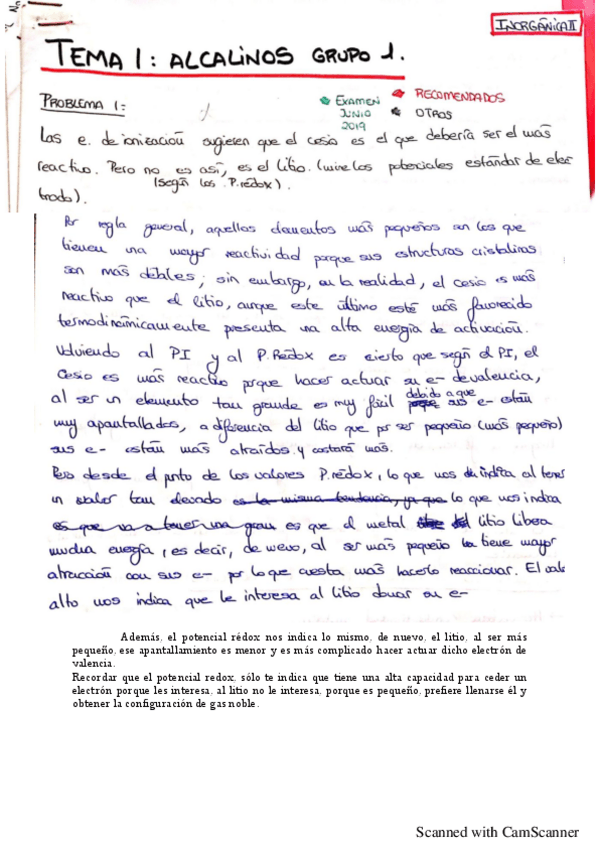 INORGÁNICA II
TEMA 1: ALCALINOS GRUPO 1.
PROBLEMA 1:
EXAMEN JUNIO 2019
RECOMENDADOS
OTROS
Las e. de ionización sugieren que el cesio es el que debería ser el más
reactivo. Pero no es así, es el litio. (mire los potenciales estándar de elec
trodo). (según los P.redox).
Por regla general, aquellos elementos más pequeños son los que
tienen una mayor reactividad porque sus estructuras cristalinas
son más débiles; sin embargo, en la realidad, el cesio es más
reactivo que el litio, aunque este último esté más favorecido
termodinámicamente presenta una alta energía de activación.
Volviendo al PI y al P.Redox es cierto que según el PI, el
Cesio es más reactivo porque hacer actuar su e- de valencia,
al ser un elemento tan grande es muy fácil debido a que sus e- están
muy apantallados, a diferencia del litio que por ser pequeño (más pequeño)
sus e- están más atraídos y costará más.
Pero desde el punto de los valores P.redox, lo que nos indica al tener
un valor tan elevado es la misma tendencia, ya que lo que nos indica
es que va a tener una gran es que el metal litio libera
mucha energía, es decir, de nuevo, al ser más pequeño tiene mayor
atracción con sus e- por lo que cuesta más hacerlo reaccionar. El
alto nos indica que le interesa al litio donar su e-
Además, el potencial rédox nos indica lo mismo, de nuevo, el litio, al ser más
pequeño, ese apantallamiento es menor y es más complicado hacer actuar dicho electrón de
valencia.
Recordar que el potencial redox, sólo te indica que tiene una alta capacidad para ceder un
electrón porque les interesa, al litio no le interesa, porque es pequeño, prefiere llenarse él y
obtener la configuración de gas noble.
Scanned with CamScanner